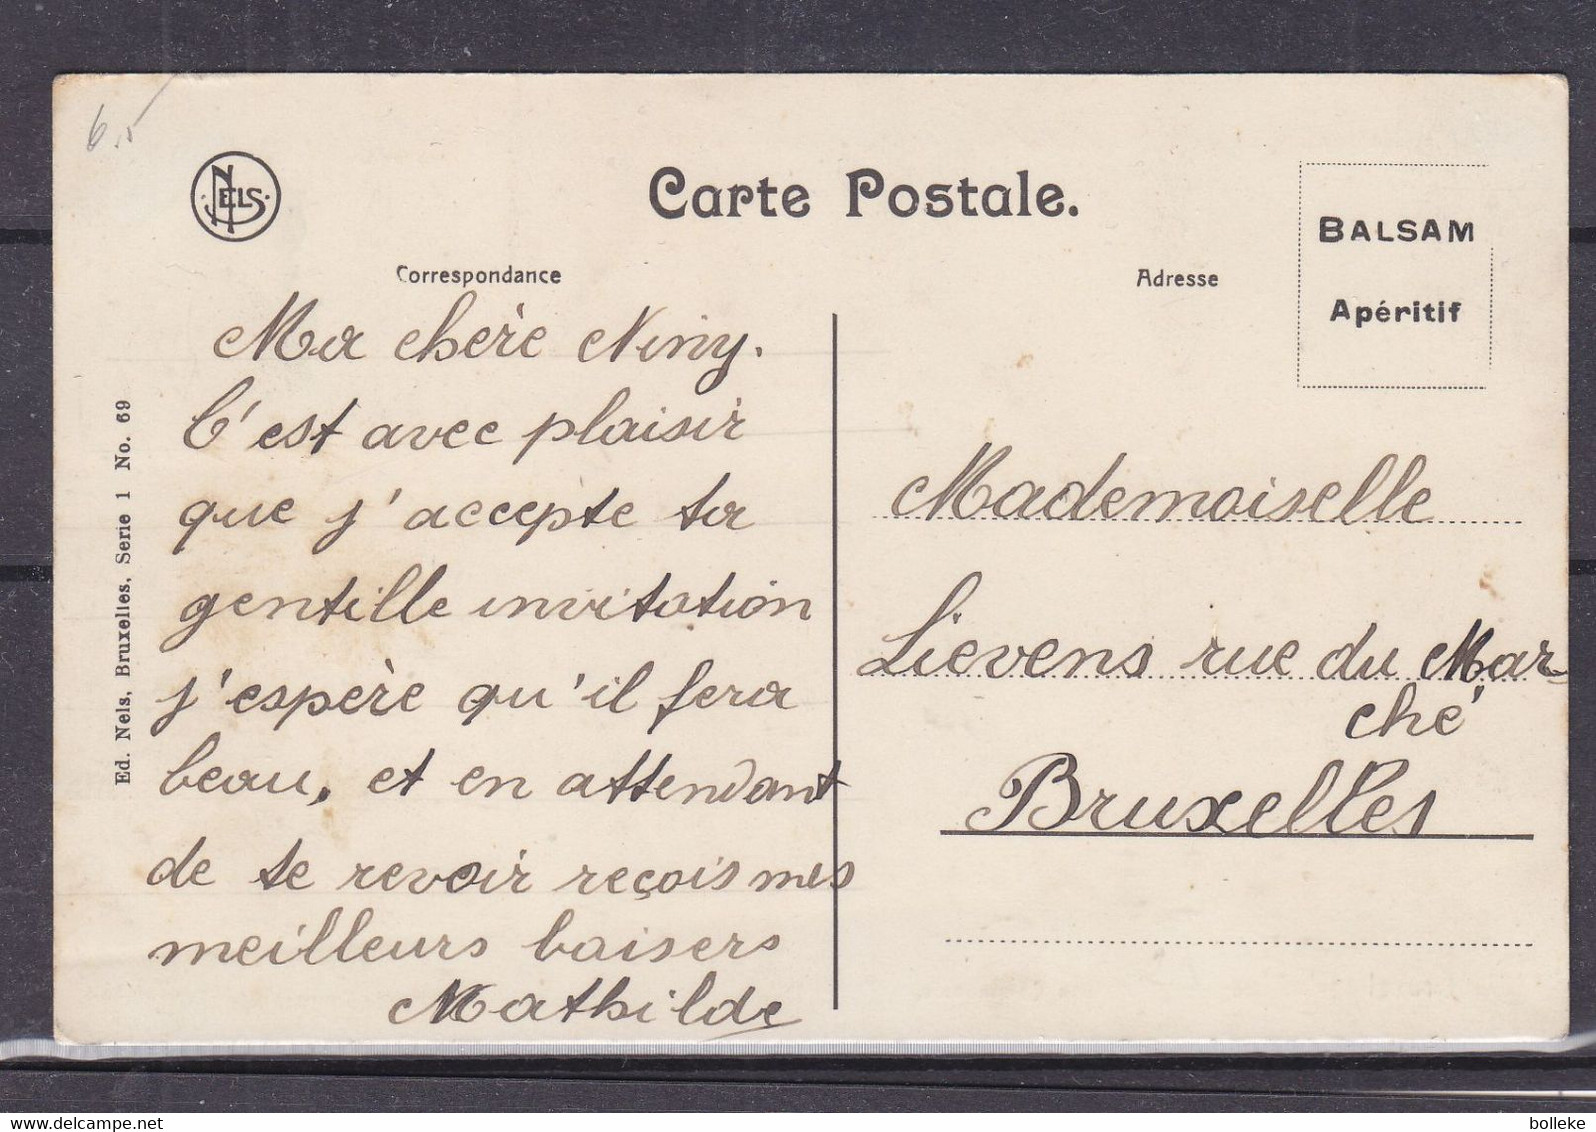 6.5
NELS
Carte Postale.
BALSAM
Apéritif
Correspondance
Adresse
Ed. Nels, Bruxelles, Serie 1 No. 69
Ma chère Niny.
C'est avec plaisir
que j'accepte ta
gentille invitation
j'espère qu'il fera
beau, et en attendant
de te revoir reçois mes
meilleurs baisers
Mathilde
Mademoiselle
Lievens rue du Mar-
ché
Bruxelles
www.delcampe.net
bolleke